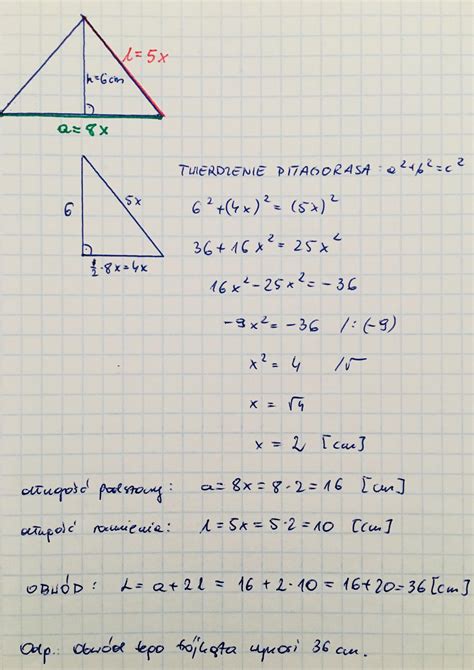 l=5x
h=6cm
a=8x
TWIERDZENIE PITAGORASA: a²+b²=c²
6
5x
½·8x=4x
6²+(4x)²=(5x)²
36+16x²=25x²
16x²-25x²=-36
-9x²=-36 /:(-9)
x²=4 /√
x=√4
x=2 [cm]
długość podstawy: a=8x=8·2=16 [cm]
długość ramienia: l=5x=5·2=10 [cm]
OBWÓD: L=a+2l=16+2·10=16+20=36[cm]
Odp.: Obwód tego trójkąta wynosi 36 cm.